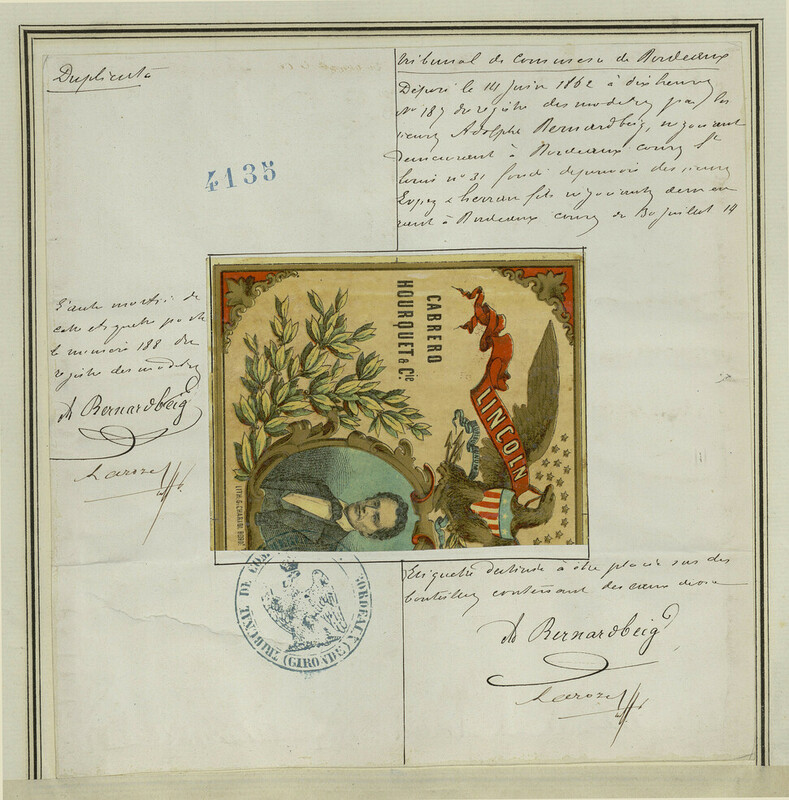 Duplicata
4135
Tribunal de Commerce de Bordeaux
Déposé le 14 Juin 1862 à dix heures
No 187 du registre des modèles par le
sieur Adolphe Bernardbeig, négociant
demeurant à Bordeaux cours St
Louis no 31 fondé de pouvoir des sieurs
Lopez & herran fils négociants demeu
rant à Bordeaux cours du 30 Juillet 14
L'autre moitié de
cette étiquette porte
le numéro 188 du
registre des modèles
A Bernardbeig
CABRERO
HOURQUET & Cie
LINCOLN
LITH. BORDX
TRIBUNAL DE COM BORDEAUX
(GIRONDE)
Etiquette destinée à être placée sur des
bouteilles contenant des eaux de vie
A Bernardbeig